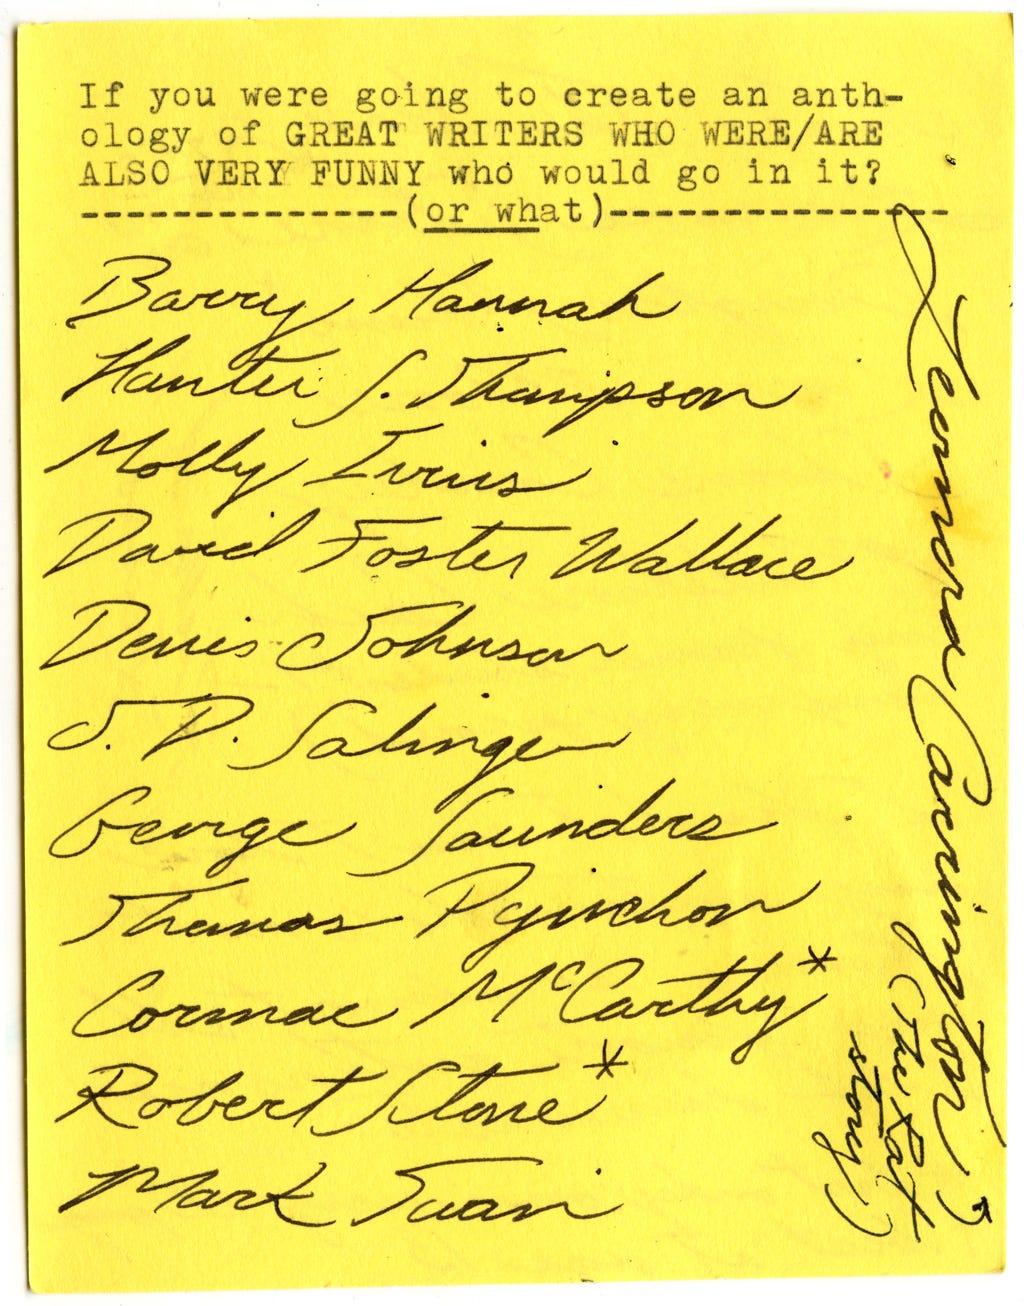 If you were going to create an anth-
ology of GREAT WRITERS WHO WERE/ARE
ALSO VERY FUNNY who would go in it?
--------------(or what)---------------
Barry Hannah
Hunter S. Thompson
Molly Ivins
David Foster Wallace
Denis Johnson
J. D. Salinger
George Saunders
Thomas Pynchon
Cormac McCarthy*
Robert Stone*
Mark Twain
Leonora Carrington
(The Rat
story)